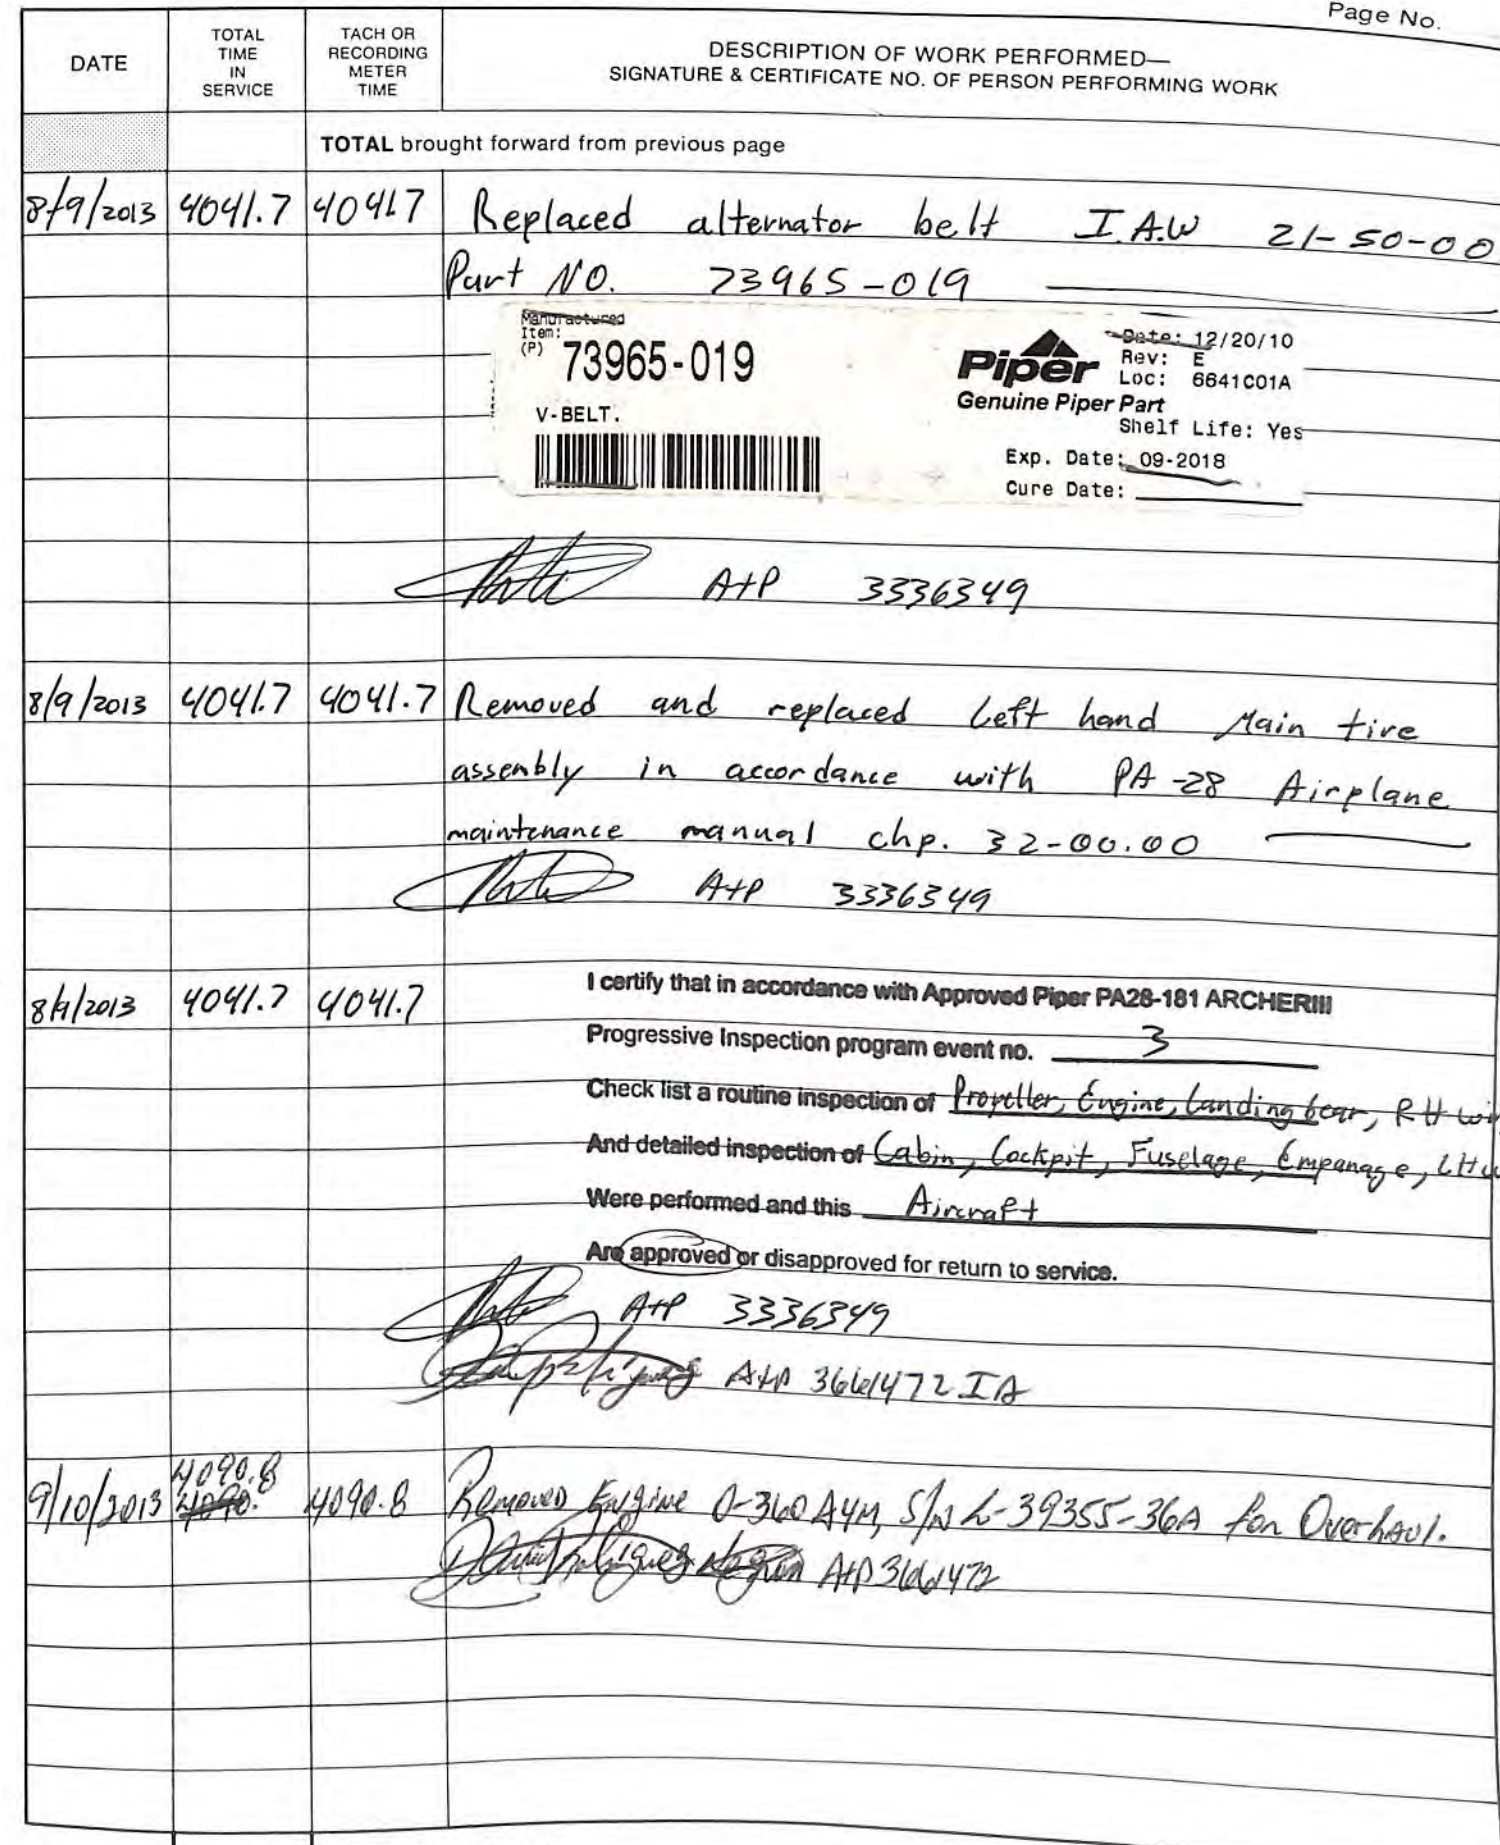 Page No.
DATE
TOTAL
TIME
IN
SERVICE
TACH OR
RECORDING
METER
TIME
DESCRIPTION OF WORK PERFORMED—
SIGNATURE & CERTIFICATE NO. OF PERSON PERFORMING WORK
TOTAL brought forward from previous page
8/9/2013 4041.7 4041.7 Replaced alternator belt I.A.W 21-50-00
Part NO. 73965-019
Manufactured
Item:
(P) 73965-019
V-BELT.
Piper
Genuine Piper Part
Date: 12/20/10
Rev: E
Loc: 6641C01A
Shelf Life: Yes
Exp. Date: 09-2018
Cure Date:
A+P 3336349
8/9/2013 4041.7 4041.7 Removed and replaced Left hand Main tire
assembly in accordance with PA-28 Airplane
maintenance manual chp. 32-00.00
A+P 3336349
8/9/2013 4041.7 4041.7 I certify that in accordance with Approved Piper PA28-181 ARCHERIII
Progressive Inspection program event no. 3
Check list a routine inspection of Propeller, Engine, Landing Gear, RH
And detailed inspection of Cabin, Cockpit, Fuselage, Empanage, LH
Were performed and this Aircraft
Are approved or disapproved for return to service.
A+P 3336349
A+P 3661472 IA
4090.8
9/10/2013 4090. 4090.8 Removed Engine O-360 A4M, S/N L-39355-36A for Overhaul.
A+P 3661472